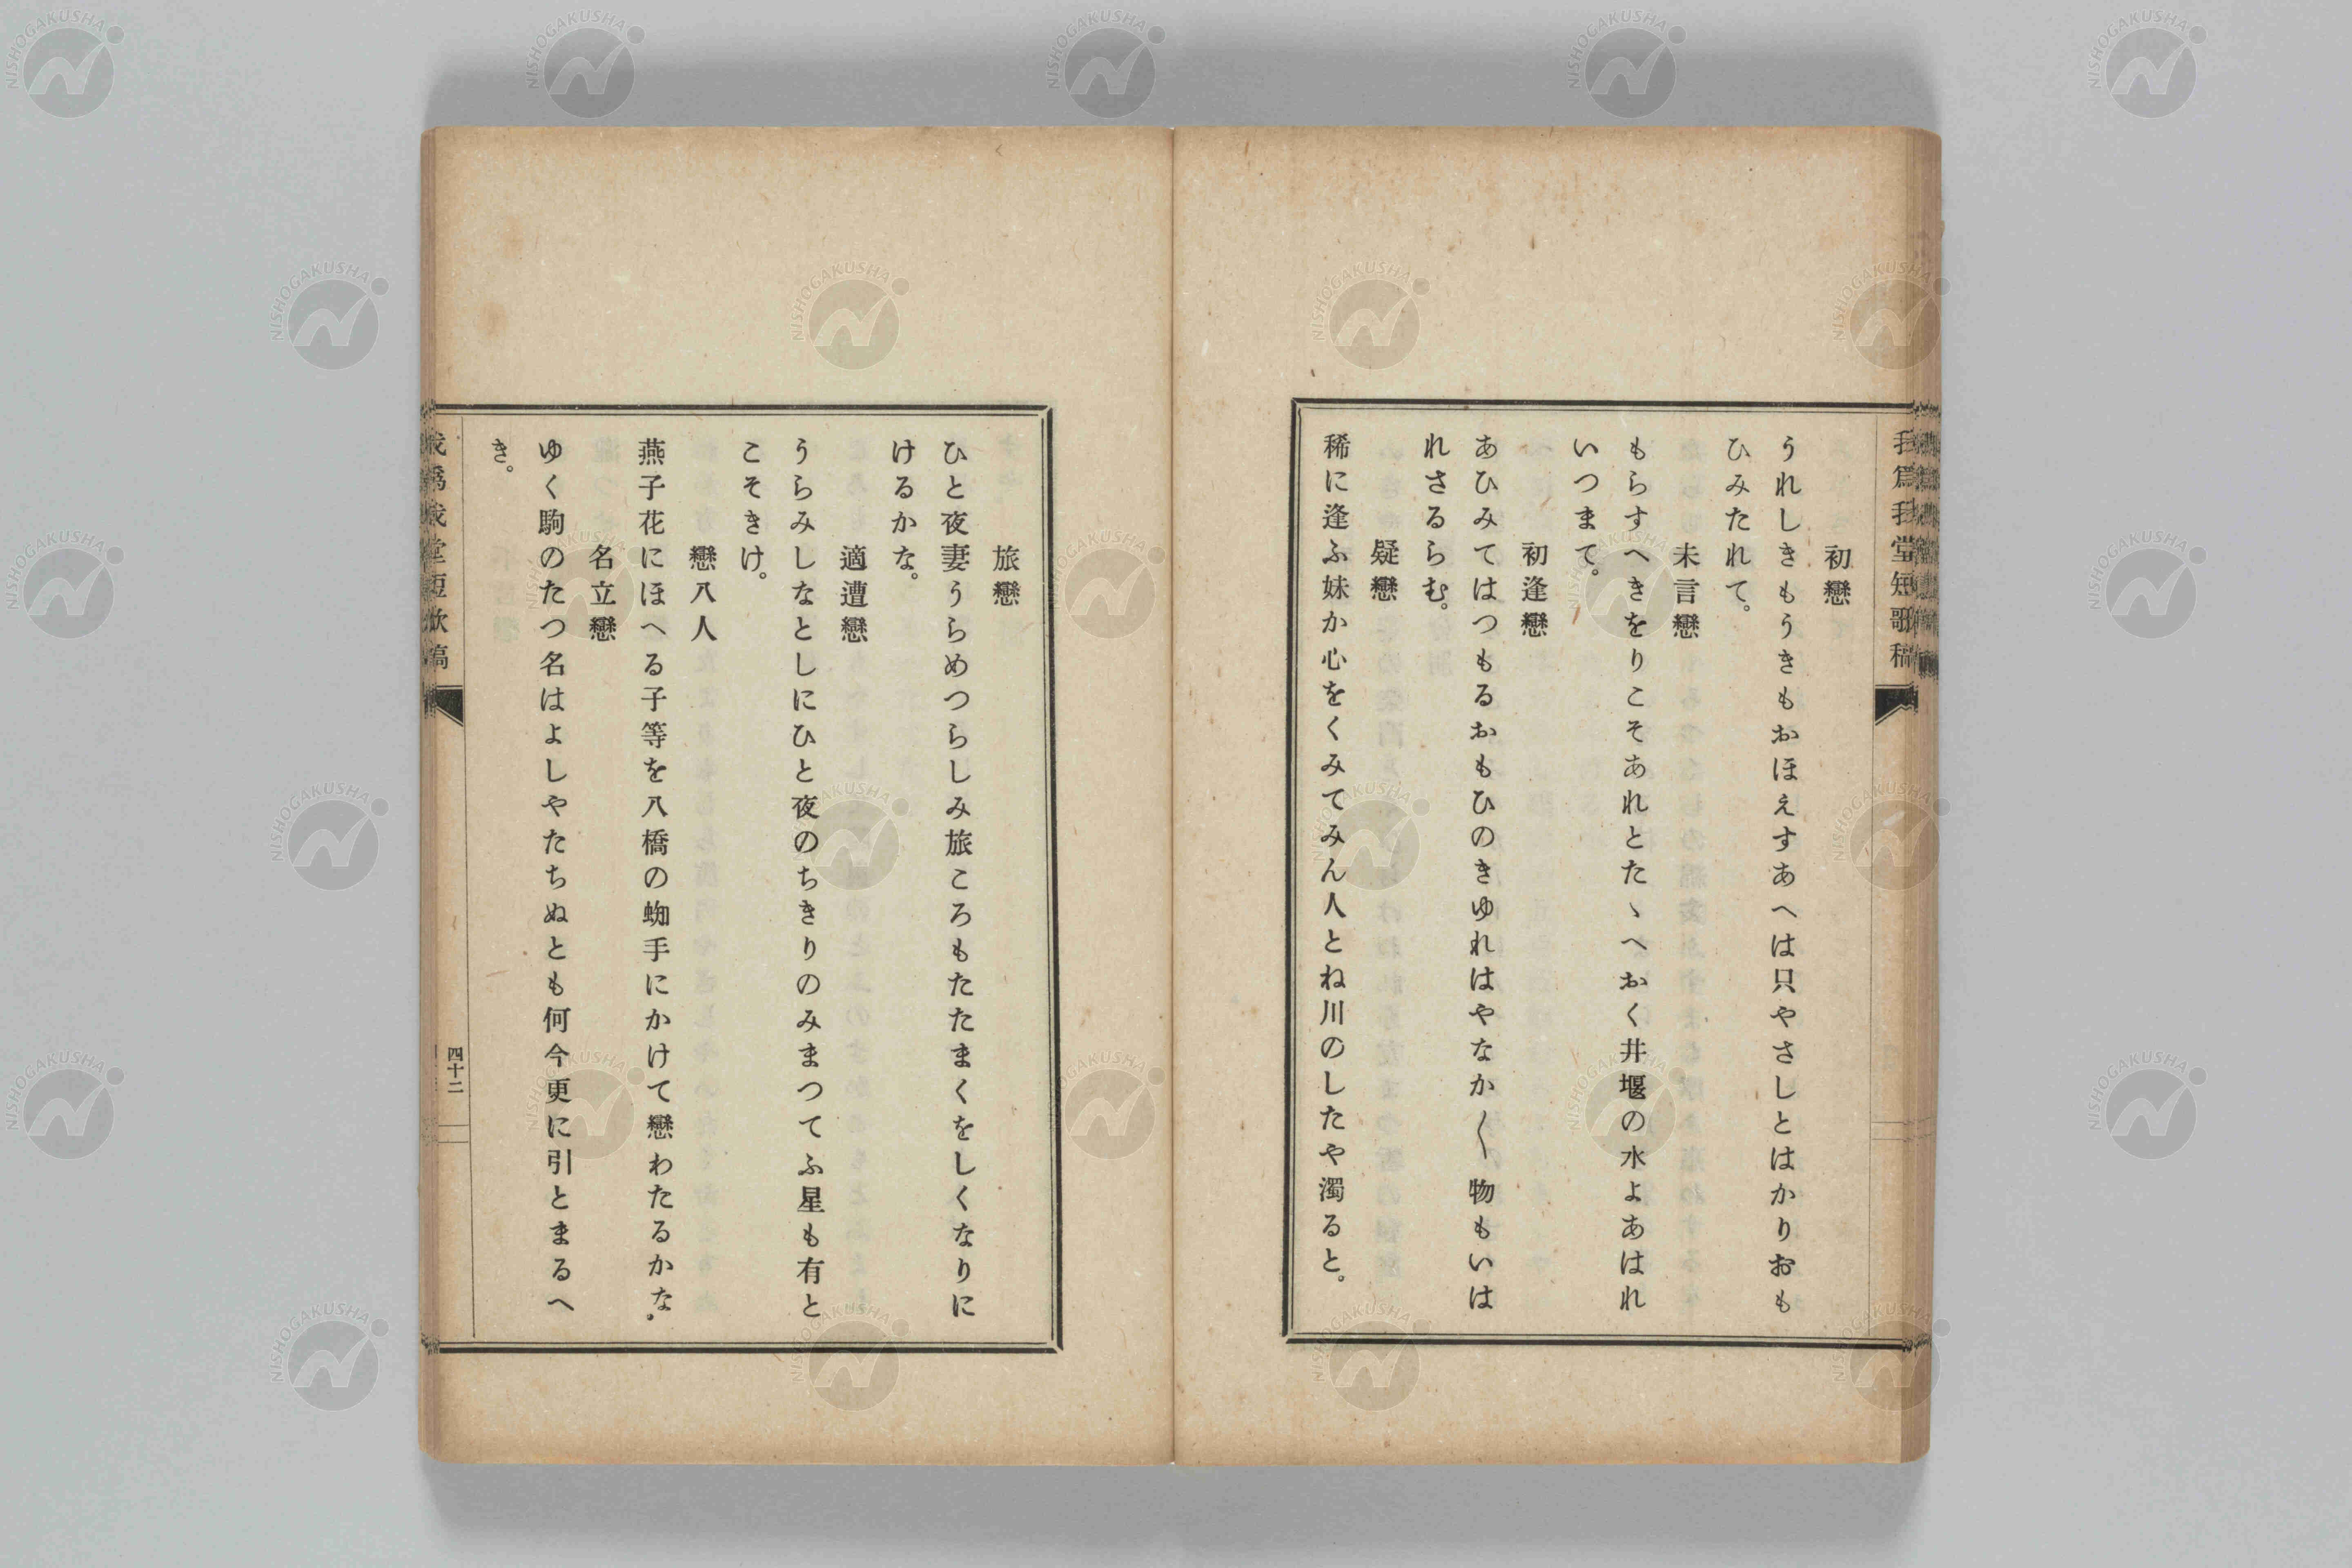 我爲我堂短歌稿
初戀
うれしきもうきもおほえすあへは只やさしとはかりおも
ひみたれて。
未言戀
もらすへきをりこそあれとたゝへおく井堰の水よあはれ
いつまて。
初逢戀
あひみてはつもるおもひのきゆれはやなか〱物もいは
れさるらむ。
疑戀
稀に逢ふ妹か心をくみてみん人とね川のしたや濁ると。
旅戀
ひと夜妻うらめつらしみ旅ころもたたまくをしくなりに
けるかな。
適遭戀
うらみしなとしにひと夜のちきりのみまつてふ星も有と
こそきけ。
戀八人
燕子花にほへる子等を八橋の蜘手にかけて戀わたるかな。
名立戀
ゆく駒のたつ名はよしやたちぬとも何今更に引とまるへ
き。
我爲我堂短歌稿
四十二
NISHOGAKUSHA